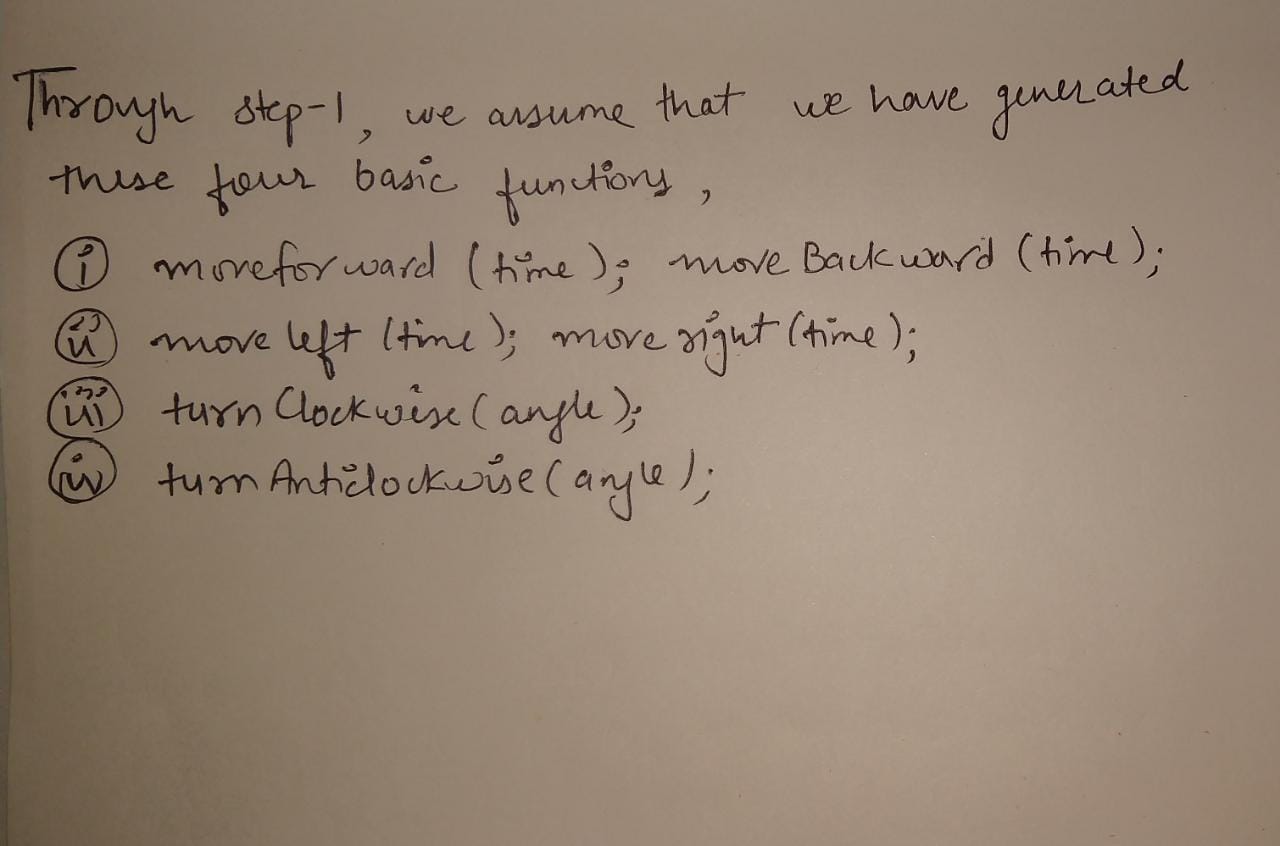 Through step-1, we assume that we have generated
these four basic functions,
(i) moveforward (time); move Backward (time);
(ii) move left (time); move right (time);
(iii) turn Clockwise (angle);
(iv) turn Anticlockwise (angle);